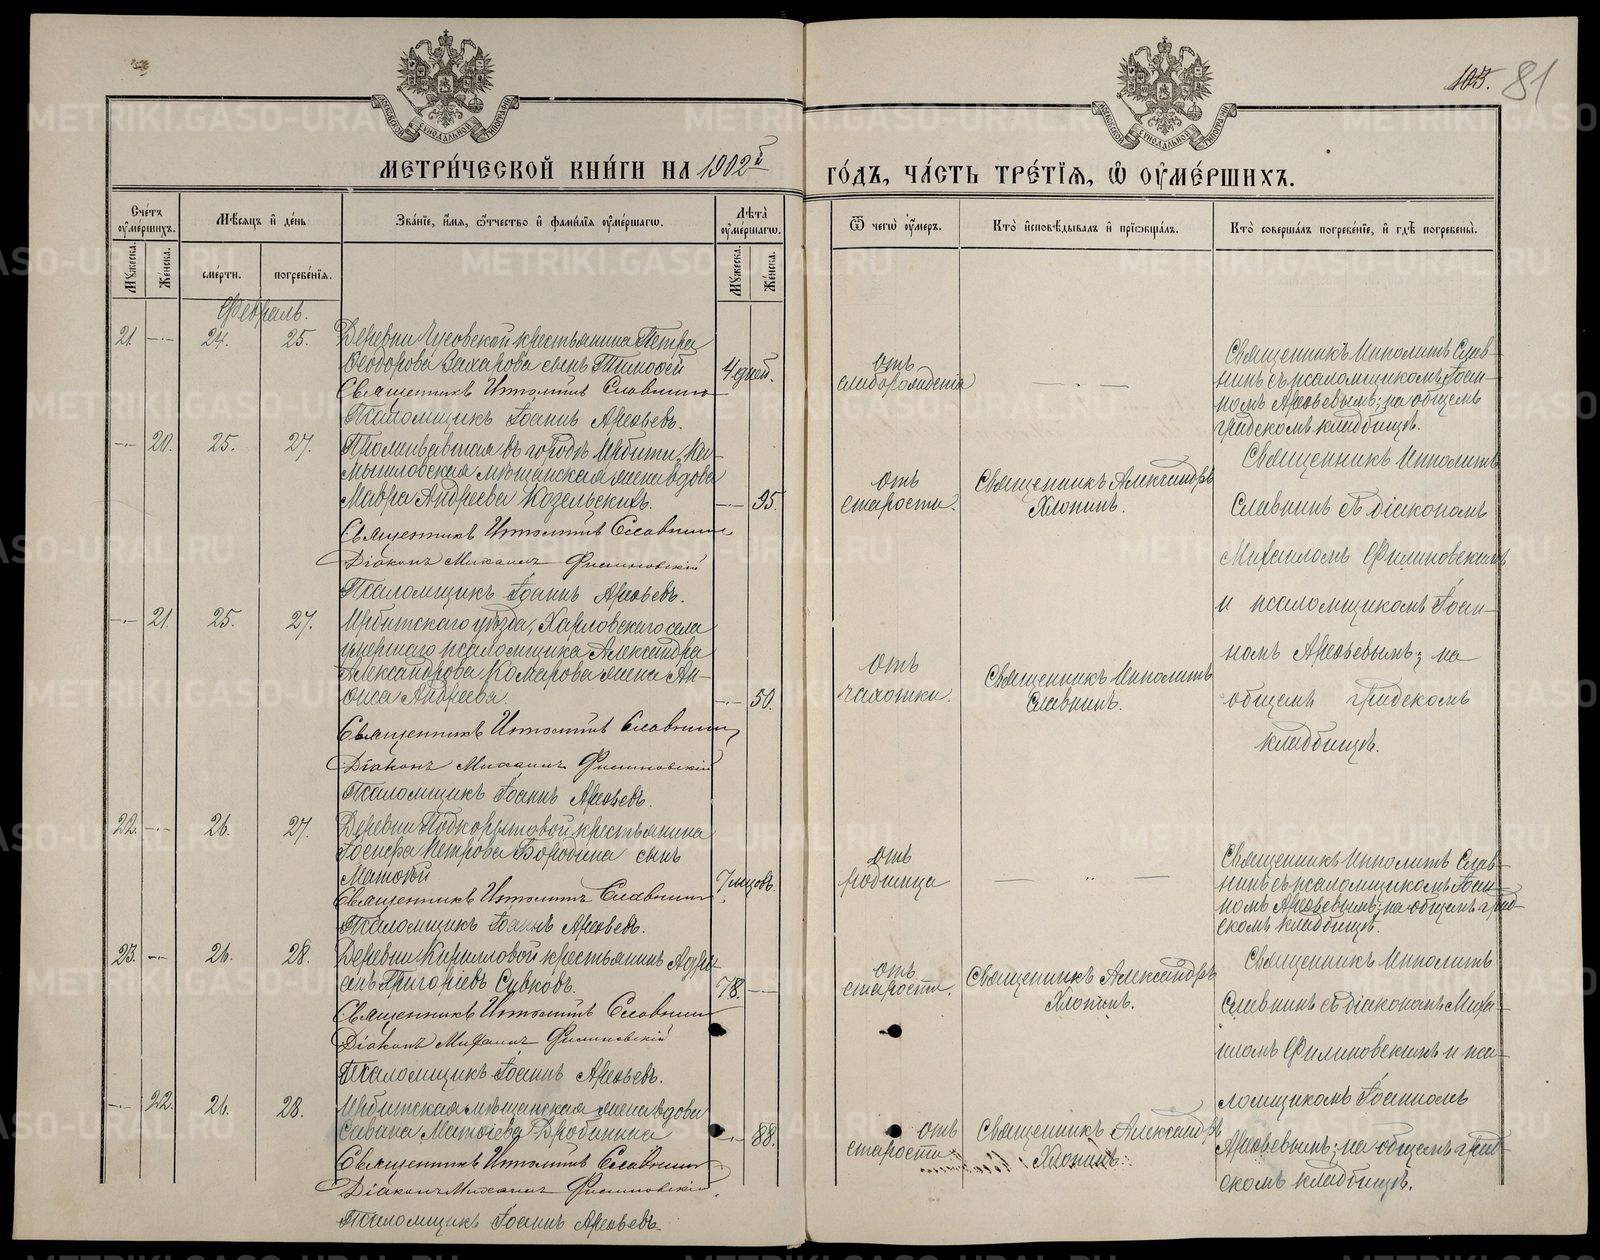 105. 81
МЕТРИ́ЧЕСКОЙ КНИ́ГИ НА 1902й
ГО́ДЪ, ЧА́СТЬ ТРЕ́ТІѦ, Ѿ ОУМЕ́РШИХЪ.
Сче́тъ оуме́ршихъ.
Мѣсяцъ и де́нь
Зва́ніе, и́мя, ѻ́тчество и фами́лія оуме́ршагѡ.
Лѣта̀ оуме́ршагѡ.
Ѿ чегѡ̀ оу́меръ.
Кто̀ исповѣ́дывалъ и пріѡбща́лъ.
Кто̀ соверша́лъ погребе́ніе, и гдѣ̀ погребены̀.
Му́жеска.
Же́нска.
сме́рти.
погребе́нія.
Му́жеска.
Же́нска.
Февраль.
21 — 24. 25.
Деревни Чусовской крестьянина Петра
Ѳеодорова Захарова сынъ Тимоѳей
4 дней.
Священникъ Ипполитъ Славнинъ
Псаломщикъ Іоаннъ Арефьевъ.
отъ
слаборожденія
Священникъ Ипполитъ Слав-
нинъ съ псаломщикомъ Іоан-
номъ Арефьевымъ; на общемъ
градскомъ кладбищѣ.
— 20. 25. 27.
Проживавшая въ городѣ Ирбити, Ка-
мышловская мѣщанская жена вдова
Мавра Андреева Козельскихъ.
— 95.
Священникъ Ипполитъ Славнинъ
Діаконъ Михаилъ Филиновскій
Псаломщикъ Іоаннъ Арефьевъ.
отъ
старости.
Священникъ Александръ
Хлопинъ.
Священникъ Ипполитъ
Славнинъ съ діакономъ
Михаиломъ Филиновскимъ
и псаломщикомъ Іоан-
номъ Арефьевымъ; на
общемъ градскомъ
кладбищѣ.
— 21. 25. 27.
Ирбитскаго уѣзда, Харловскаго села
умершаго псаломщика Александра
Александрова Комарова жена Ан-
фиса Андреева.
— 50.
Священникъ Ипполитъ Славнинъ
Діаконъ Михаилъ Филиновскій
Псаломщикъ Іоаннъ Арефьевъ.
отъ
чахотки.
Священникъ Ипполитъ
Славнинъ.
22. — 26. 27.
Деревни Подкорытовой крестьянина
Іосифа Петрова Бородина сынъ
Матѳей
7 мцовъ.
Священникъ Ипполитъ Славнинъ
Псаломщикъ Іоаннъ Арефьевъ.
отъ
родимца
Священникъ Ипполитъ Слав-
нинъ съ псаломщикомъ Іоан-
номъ Арефьевымъ; на общемъ град-
скомъ кладбищѣ.
23. — 26. 28.
Деревни Кирилловой крестьянинъ Адрі-
анъ Григоріевъ Сивковъ.
78. —
Священникъ Ипполитъ Славнинъ
Діаконъ Михаилъ Филиновскій
Псаломщикъ Іоаннъ Арефьевъ.
отъ
старости.
Священникъ Александръ
Хлопинъ.
Священникъ Ипполитъ
Славнинъ съ діакономъ Миха-
иломъ Филиновскимъ и пса-
ломщикомъ Іоанномъ
Арефьевымъ; на общемъ град-
скомъ кладбищѣ.
— 22. 26. 28.
Ирбитская мѣщанская жена вдова
Матѳіева Дробинина
— 88.
Священникъ Ипполитъ Славнинъ
Діаконъ Михаилъ Филиновскій.
Псаломщикъ Іоаннъ Арефьевъ
отъ
старости
Священникъ Александръ
Хлопинъ.
METRIKI.GASO-URAL.RU